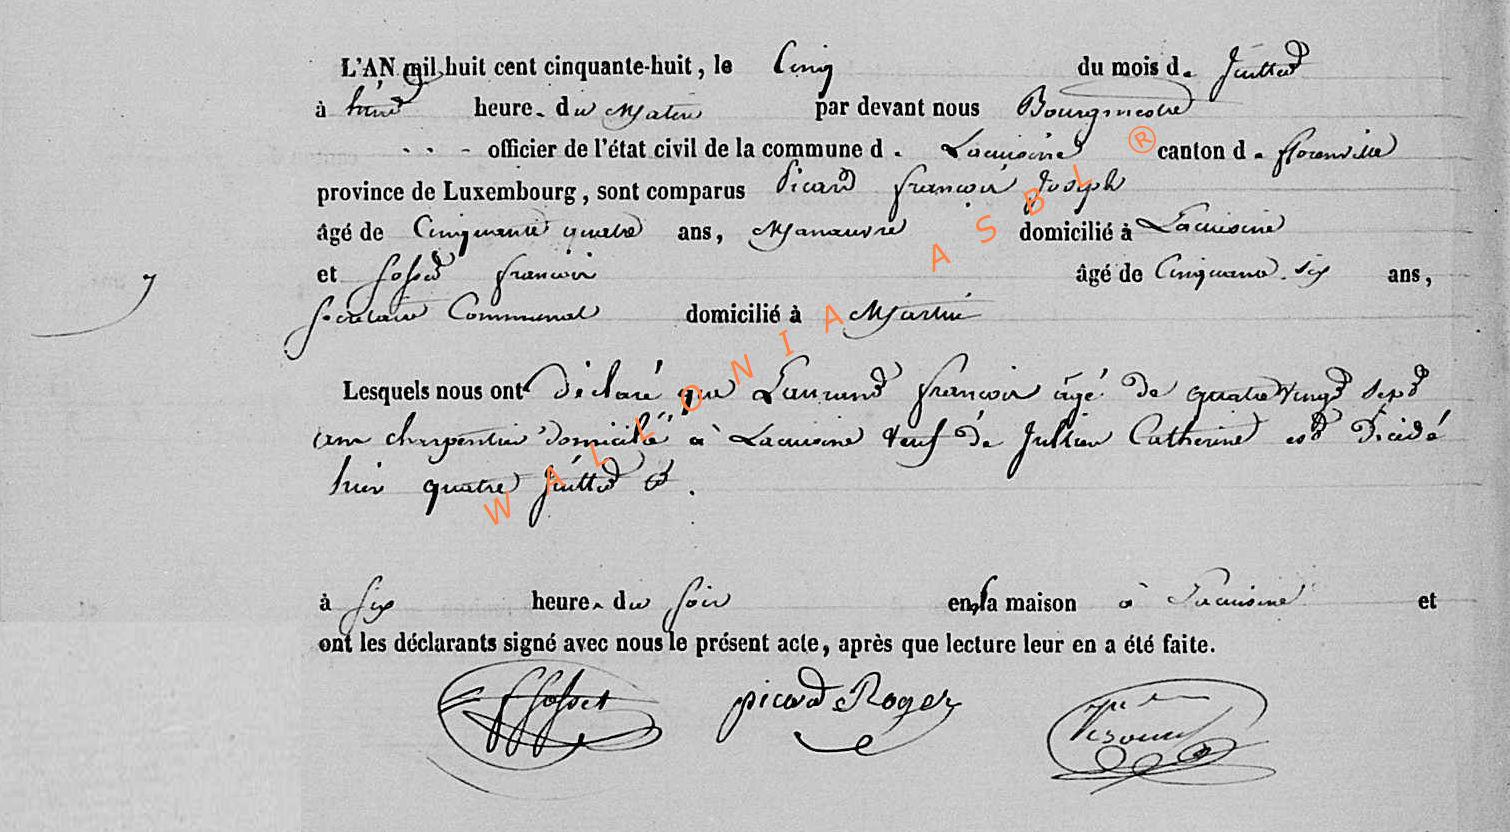 L'AN mil huit cent cinquante-huit, le Cinq du mois d. Juillet
à huit heure. du Matin par devant nous Bourgmestre
officier de l'état civil de la commune d. Lacuisine canton d. florenville
province de Luxembourg, sont comparus Picard françois Joseph
âgé de Cinquante quatre ans, Manœuvre domicilié à Lacuisine
et fosset françois âgé de Cinquante six ans,
Secrétaire Communal domicilié à Martué
Lesquels nous ont déclaré que Laurent françois âgé de quatre vingt sept
ans charpentier domicilié à Lacuisine veuf de Jullien Catherine est décédé
hier quatre Juillet
à six heure. du soir en sa maison à Lacuisine et
ont les déclarants signé avec nous le présent acte, après que lecture leur en a été faite.
fosset picard Roger
WALLONIA ASBL ®